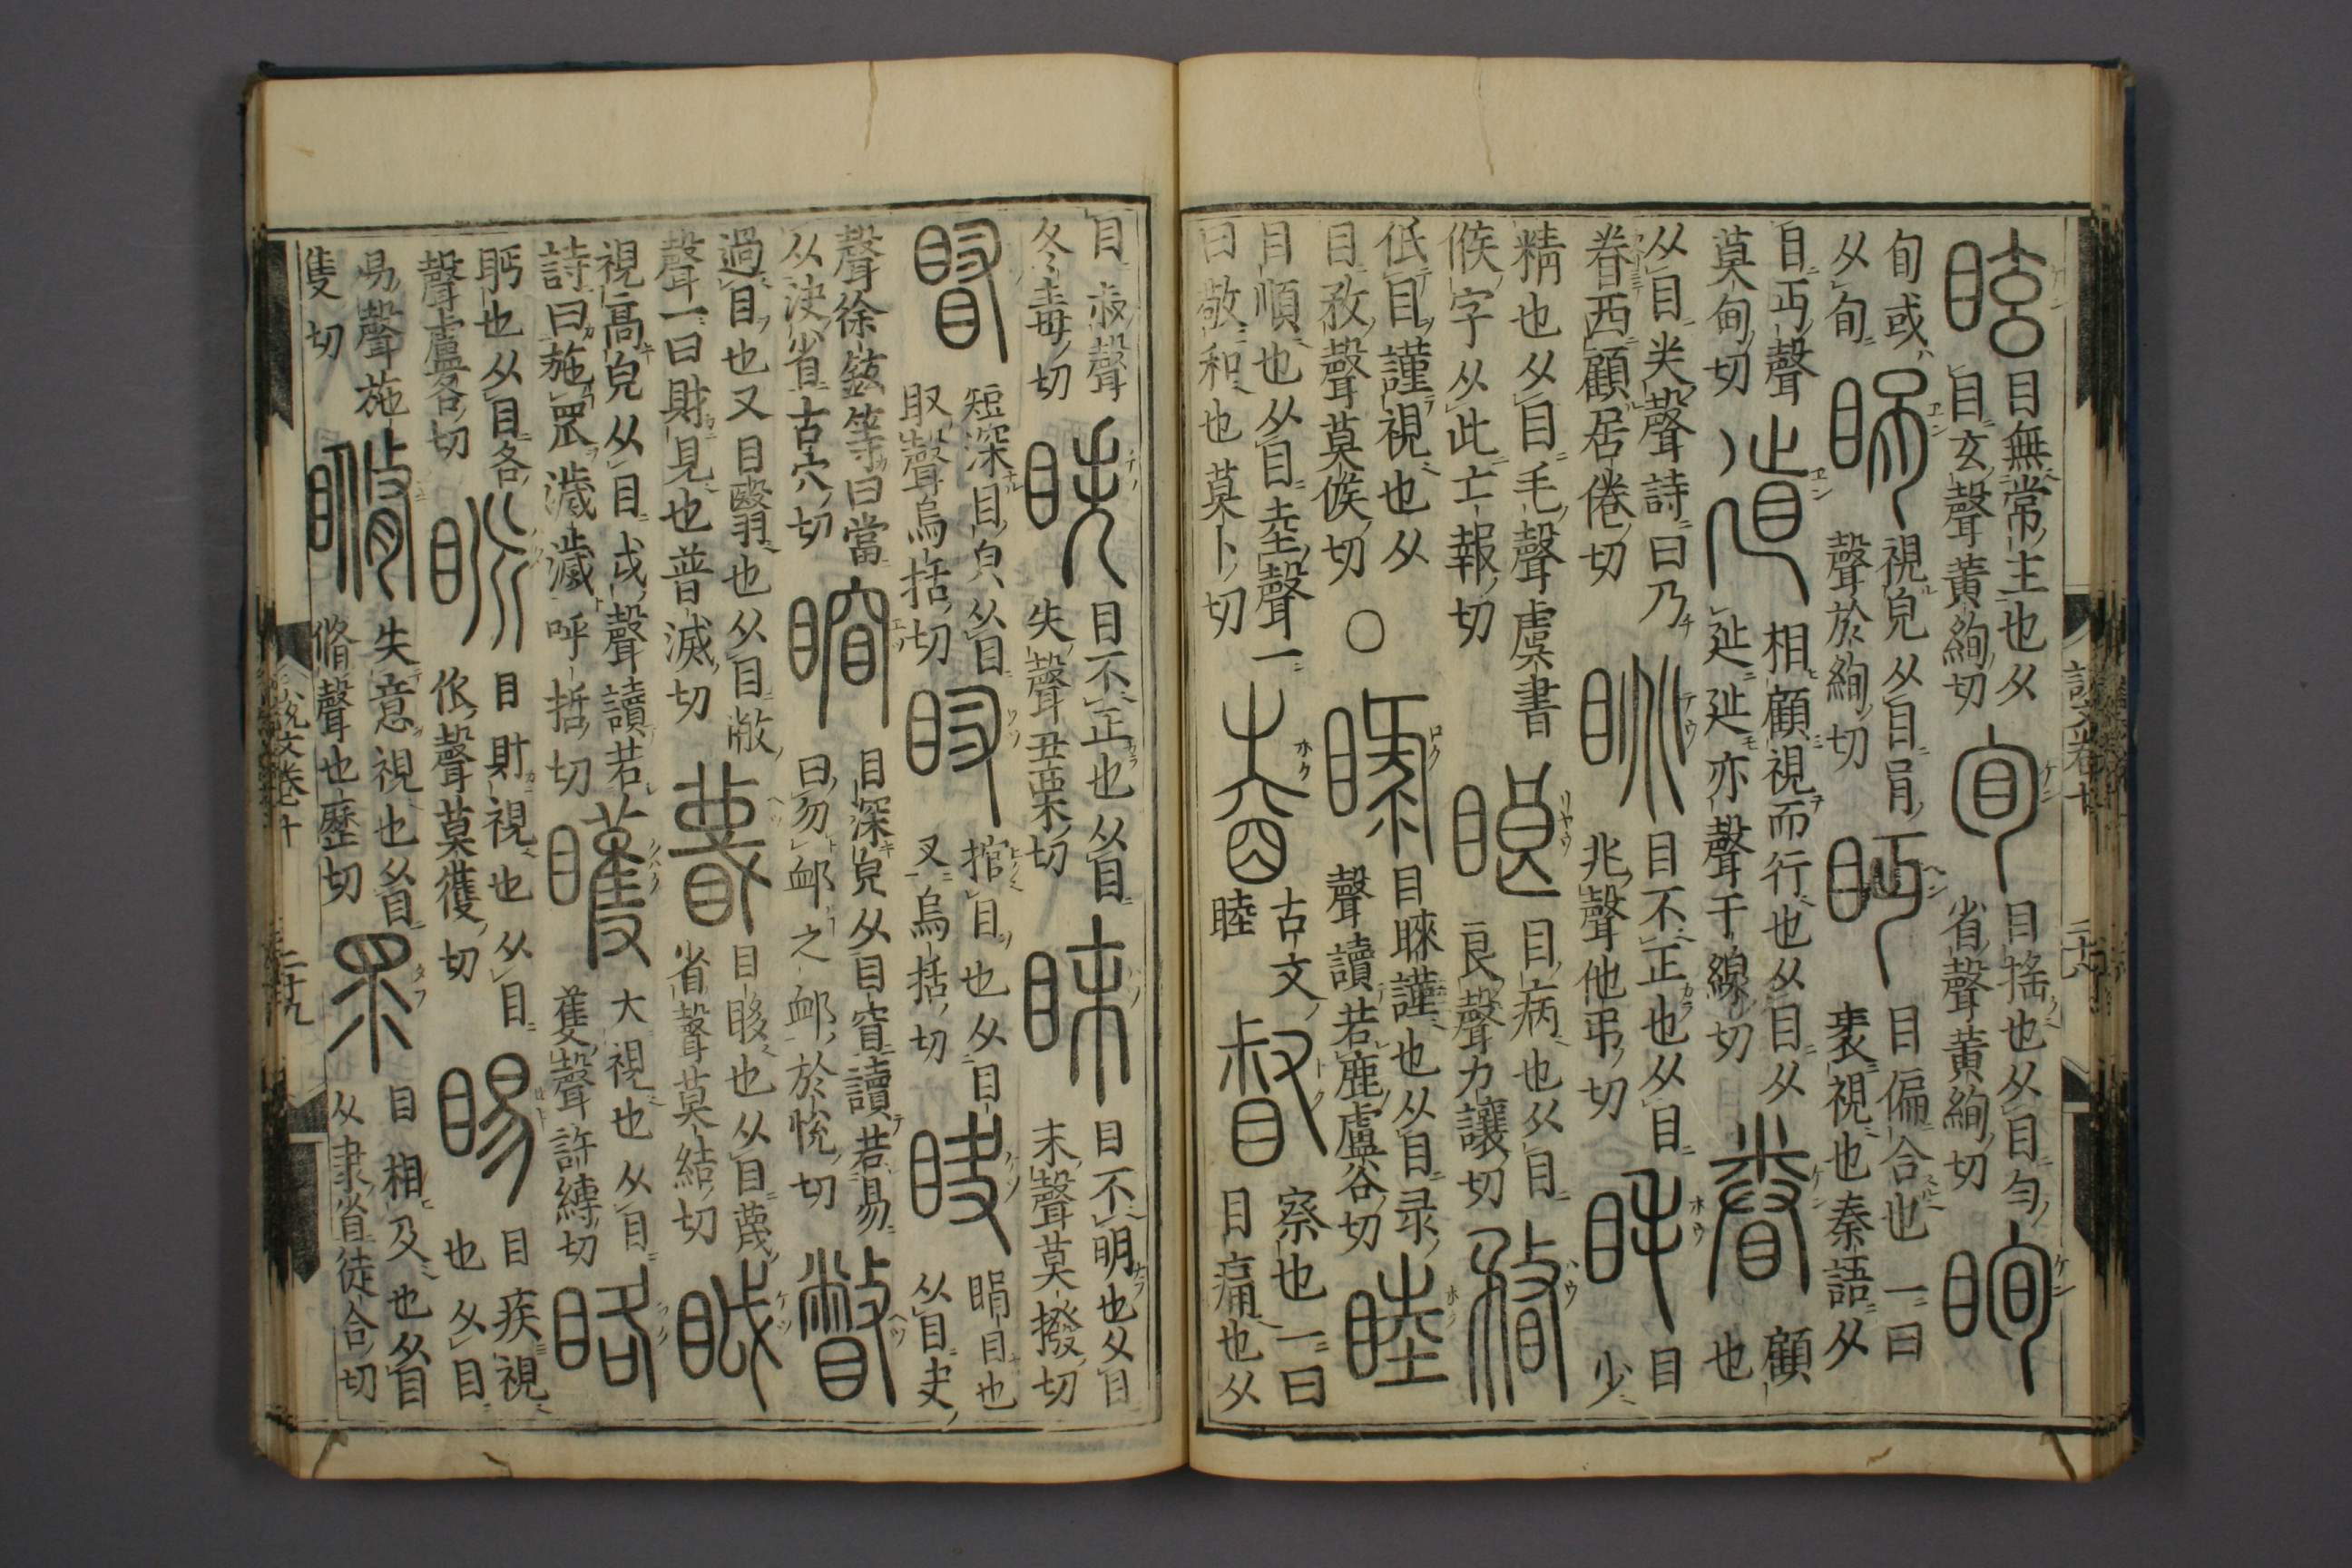 眩
目無常主也从
目玄聲黄絢切
旬
目揺也从目勻
省聲黄絢切
眴
旬或
从旬
睊
視皃从目肙
聲於絢切
眄
目偏合也一曰
衺視也秦語从
目丏聲
莫甸切
相顧視而行也从目从
㢟㢟亦聲于線切
眷
顧
也
从目𢍏聲詩曰乃
眷西顧居倦切
眺
目不正也从目
兆聲他弔切
眊
目
少
精也从目毛聲虞書
字从此亡報切
䀶
目病也从目
良聲力讓切
瞀
低目謹視也从
目敄聲莫候切
〇
睩
目睞謹也从目录
聲讀若鹿盧谷切
睦
目順也从目坴聲一
曰敬和也莫卜切
古文
睦
督
察也一曰
目痛也从
說文卷十
二十八
目叔聲
冬毒切
眣
目不正也从目
失聲丑栗切
眜
目不明也从目
末聲莫撥切
短深目皃从目
聲烏括切
捾目也从目
叉烏括切
睊目也
从目夬
聲徐鉉等曰當
从决省古穴切
目深皃从目窅讀若易
曰勿䘏之䘏於悅切
瞥
過目也又目翳也从目敝
聲一曰財見也普滅切
目眵也从目蔑
省聲莫結切
眓
視高皃从目戉聲讀若
詩曰施罛濊濊呼哲切
矆
大視也从目
蒦聲許縛切
略
眄也从目各
聲盧各切
目財視也从目
𠂢聲莫獲切
睗
目疾視
也从目
易聲施
隻切
失意視也从目
脩聲也歷切
眔
目相及也从目
从隶省徒合切
說文卷十
二十九